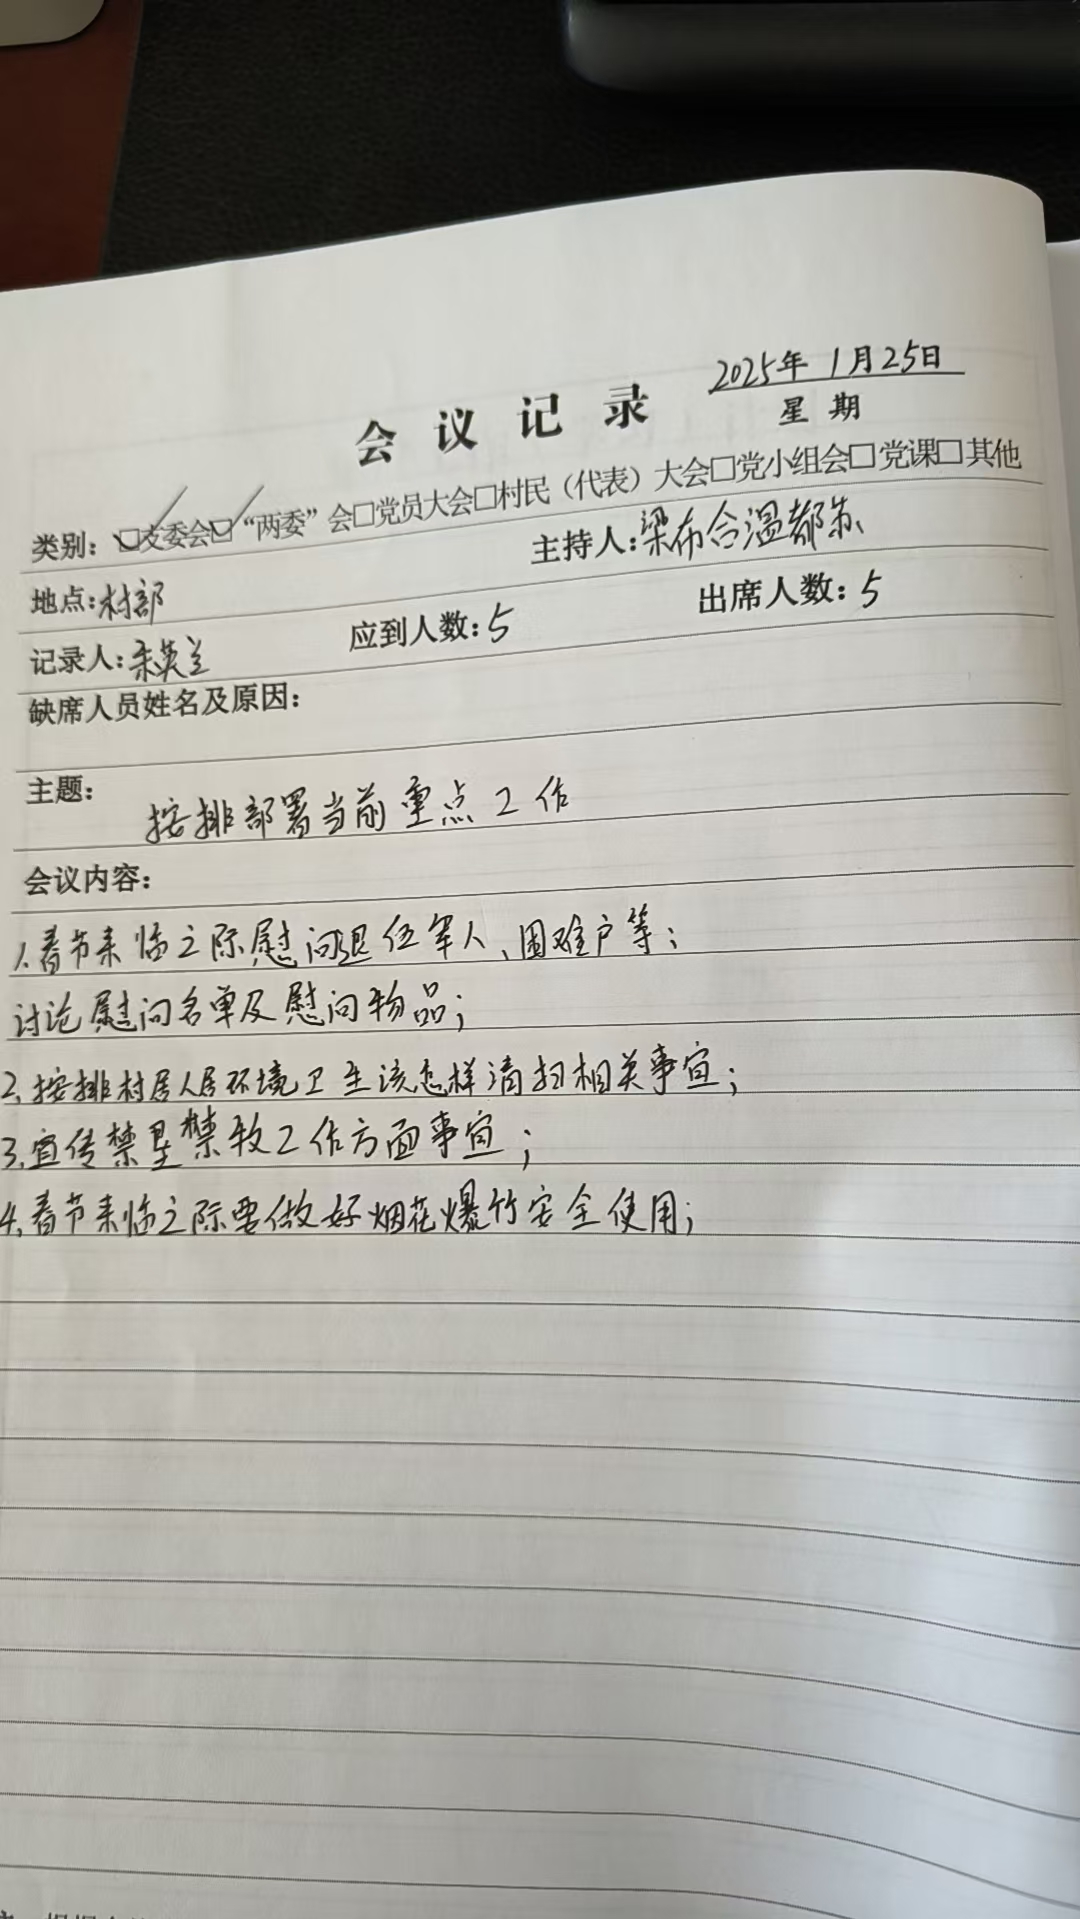 2025年 1月25日
会议记录
星期
类别：☑支委会☑“两委”会□党员大会□村民（代表）大会□党小组会□党课□其他
地点：村部 主持人：梁布合温都苏
记录人：英兰 应到人数：5 出席人数：5
缺席人员姓名及原因：
主题：
按排部署当前重点工作
会议内容：
1.春节来临之际慰问退伍军人、困难户等；
讨论慰问名单及慰问物品；
2.按排村居人居环境卫生该怎样清扫相关事宜；
3.宣传禁垦禁牧工作方面事宜；
4.春节来临之际要做好烟花爆竹安全使用；